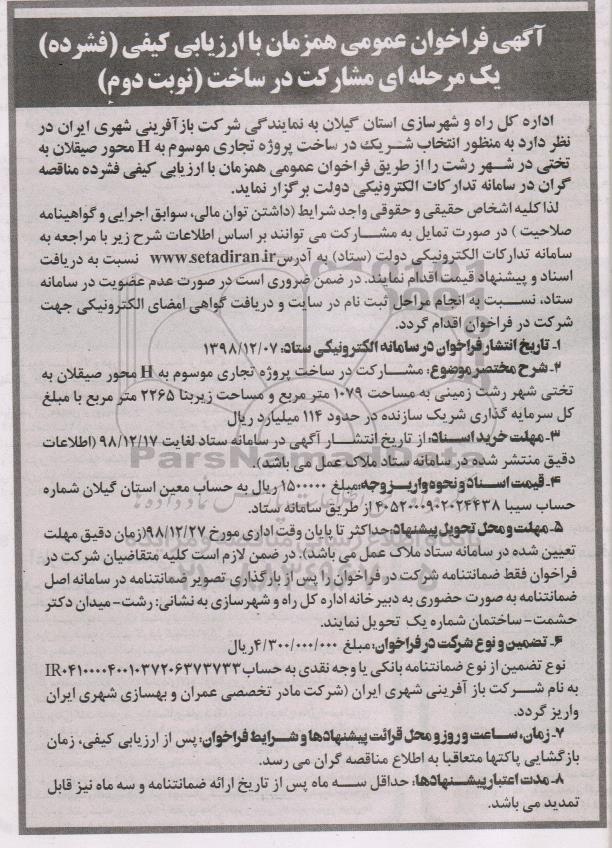 آگهی فراخوان عمومی همزمان با ارزیابی کیفی (فشرده)
یک مرحله ای مشارکت در ساخت (نوبت دوم)
اداره کل راه و شهرسازی استان گیلان به نمایندگی شرکت بازآفرینی شهری ایران در
نظر دارد به منظور انتخاب شریک در ساخت پروژه تجاری موسوم به H محور صیقلان به
تختی در شهر رشت را از طریق فراخوان عمومی همزمان با ارزیابی کیفی فشرده مناقصه
گران در سامانه تدارکات الکترونیکی دولت برگزار نماید.
لذا کلیه اشخاص حقیقی و حقوقی واجد شرایط (داشتن توان مالی، سوابق اجرایی و گواهینامه
صلاحیت) در صورت تمایل به مشارکت می توانند بر اساس اطلاعات شرح زیر با مراجعه به
سامانه تدارکات الکترونیکی دولت (ستاد) به آدرس www.setadiran.ir نسبت به دریافت
اسناد و پیشنهاد قیمت اقدام نمایند. در ضمن ضروری است در صورت عدم عضویت در سامانه
ستاد، نسبت به انجام مراحل ثبت نام در سایت و دریافت گواهی امضای الکترونیکی جهت
شرکت در فراخوان اقدام گردد.
۱ـ تاریخ انتشار فراخوان در سامانه الکترونیکی ستاد: ۱۳۹۸/۱۲/۰۷
۲ـ شرح مختصر موضوع: مشارکت در ساخت پروژه تجاری موسوم به H محور صیقلان به
تختی شهر رشت زمینی به مساحت ۱۰۷۹ متر مربع و مساحت زیربنا ۲۲۶۵ متر مربع با مبلغ
کل سرمایه گذاری شریک سازنده در حدود ۱۱۴ میلیارد ریال
۳ـ مهلت خرید اسناد: از تاریخ انتشار آگهی در سامانه ستاد لغایت ۹۸/۱۲/۱۷ (اطلاعات
دقیق منتشر شده در سامانه ستاد ملاک عمل می باشد).
۴ـ قیمت اسناد و نحوه واریز وجه: مبلغ ۱۵۰۰۰۰۰ ریال به حساب معین استان گیلان شماره
حساب سیبا ۴۰۵۲۰۰۰۹۰۲۰۲۴۴۳۸ از طریق سامانه ستاد.
۵ـ مهلت و محل تحویل پیشنهاد: حداکثر تا پایان وقت اداری مورخ ۹۸/۱۲/۲۷(زمان دقیق مهلت
تعیین شده در سامانه ستاد ملاک عمل می باشد). در ضمن لازم است کلیه متقاضیان شرکت در
فراخوان فقط ضمانتنامه شرکت در فراخوان را پس از بارگذاری تصویر ضمانتنامه در سامانه اصل
ضمانتنامه به صورت حضوری به دبیرخانه اداره کل راه و شهرسازی به نشانی: رشت- میدان دکتر
حشمت- ساختمان شماره یک تحویل نمایند.
۶- تضمین و نوع شرکت در فراخوان: مبلغ ۴/۳۰۰/۰۰۰/۰۰۰ریال
نوع تضمین از نوع ضمانتنامه بانکی یا وجه نقدی به حساب IR۰۴۱۰۰۰۰۴۰۰۱۰۳۷۲۰۶۳۷۳۷۳۳
به نام شرکت باز آفرینی شهری ایران (شرکت مادر تخصصی عمران و بهسازی شهری ایران
واریز گردد.
۷-زمان، ساعت و روز و محل قرائت پیشنهادها و شرایط فراخوان: پس از ارزیابی کیفی، زمان
بازگشایی پاکتها متعاقبا به اطلاع مناقصه گران می رسد.
۸ـ مدت اعتبار پیشنهادها: حداقل سه ماه پس از تاریخ ارائه ضمانتنامه و سه ماه نیز قابل
تمدید می باشد.
ParsNamadData